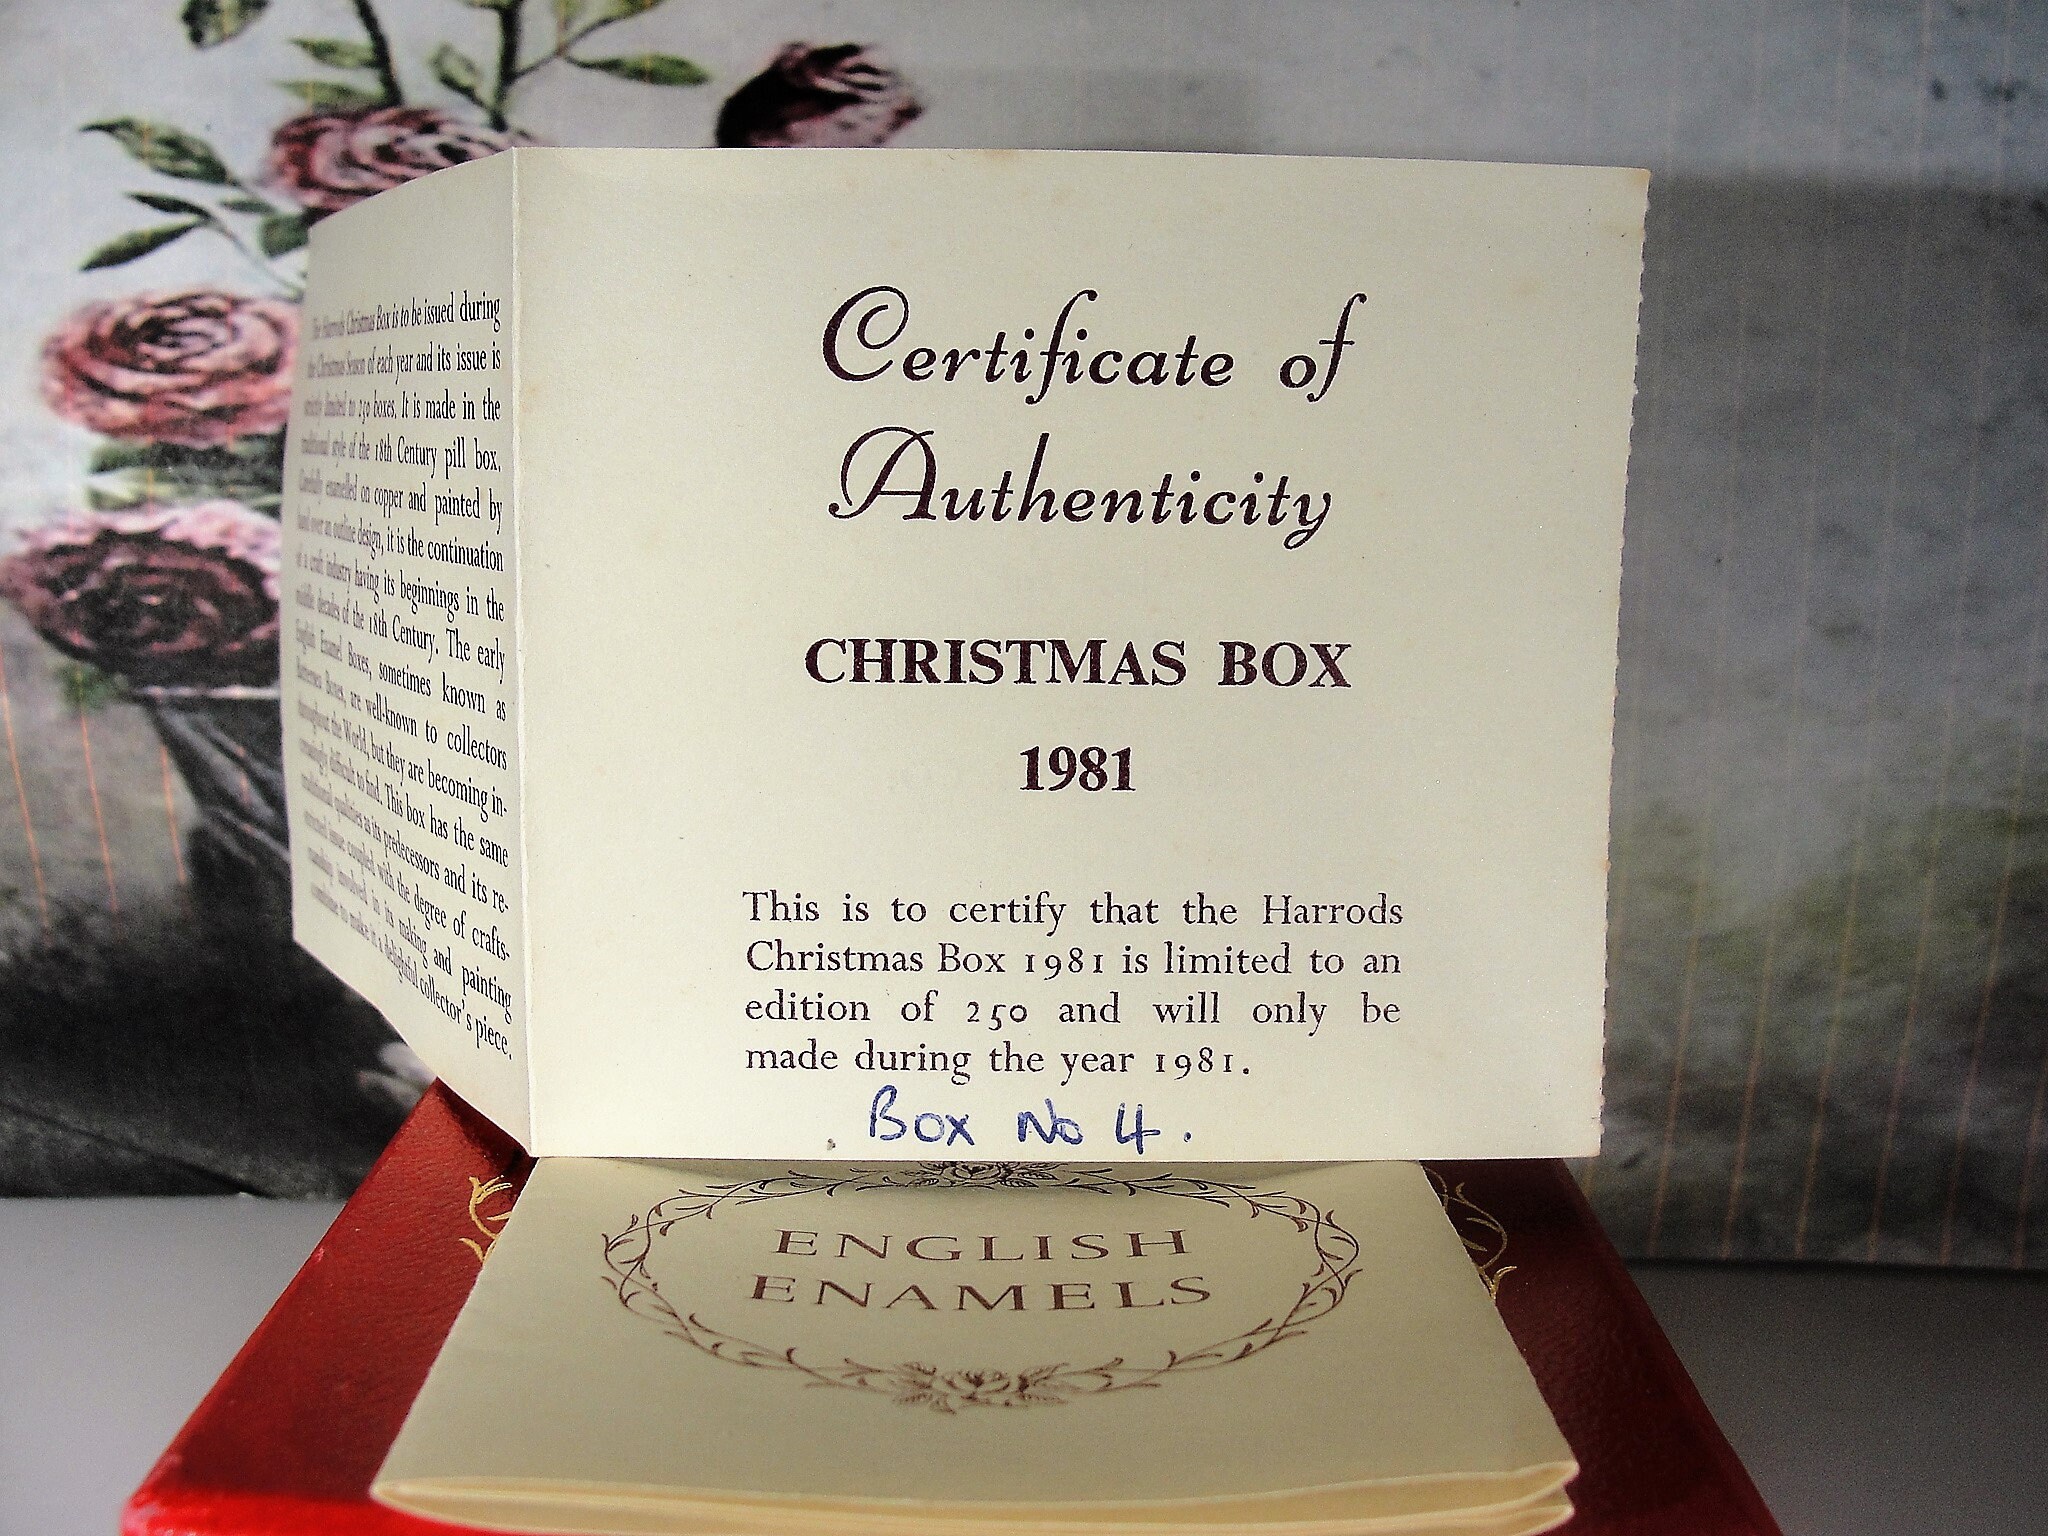 The Harrods Christmas Box is to be issued during
the Christmas Season of each year and its issue is
strictly limited to 250 boxes. It is made in the
traditional style of the 18th Century pill box.
Carefully enamelled on copper and painted by
hand over an outline design, it is the continuation
of a craft industry having its beginnings in the
middle decades of the 18th Century. The early
English Enamel Boxes, sometimes known as
Battersea Boxes, are well-known to collectors
throughout the World, but they are becoming in-
creasingly difficult to find. This box has the same
traditional qualities as its predecessors and its re-
stricted issue coupled with the degree of crafts-
manship involved in its making and painting
continue to make it a delightful collector's piece.
Certificate of
Authenticity
CHRISTMAS BOX
1981
This is to certify that the Harrods
Christmas Box 1981 is limited to an
edition of 250 and will only be
made during the year 1981.
Box No 4.
ENGLISH
ENAMELS